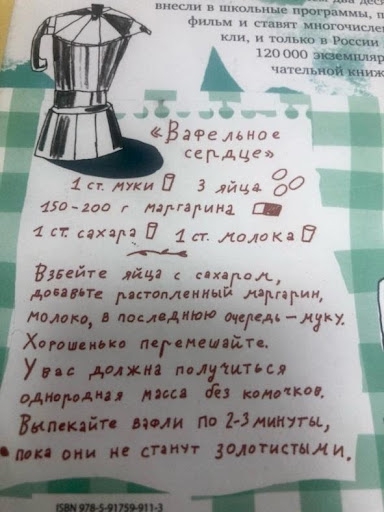 внесли в школьные программы, п
фильм и ставят многочислен
кли, и только в России
120 000 экземпляр
чательной книж
«Вафельное
сердце»
1 ст. муки 3 яйца
150-200 г маргарина
1 ст. сахара 1 ст. молока
Взбейте яйца с сахаром,
добавьте растопленный маргарин,
молоко, в последнюю очередь – муку.
Хорошенько перемешайте.
У вас должна получиться
однородная масса без комочков.
Выпекайте вафли по 2-3 минуты,
пока они не станут золотистыми.
ISBN 978-5-91759-911-3